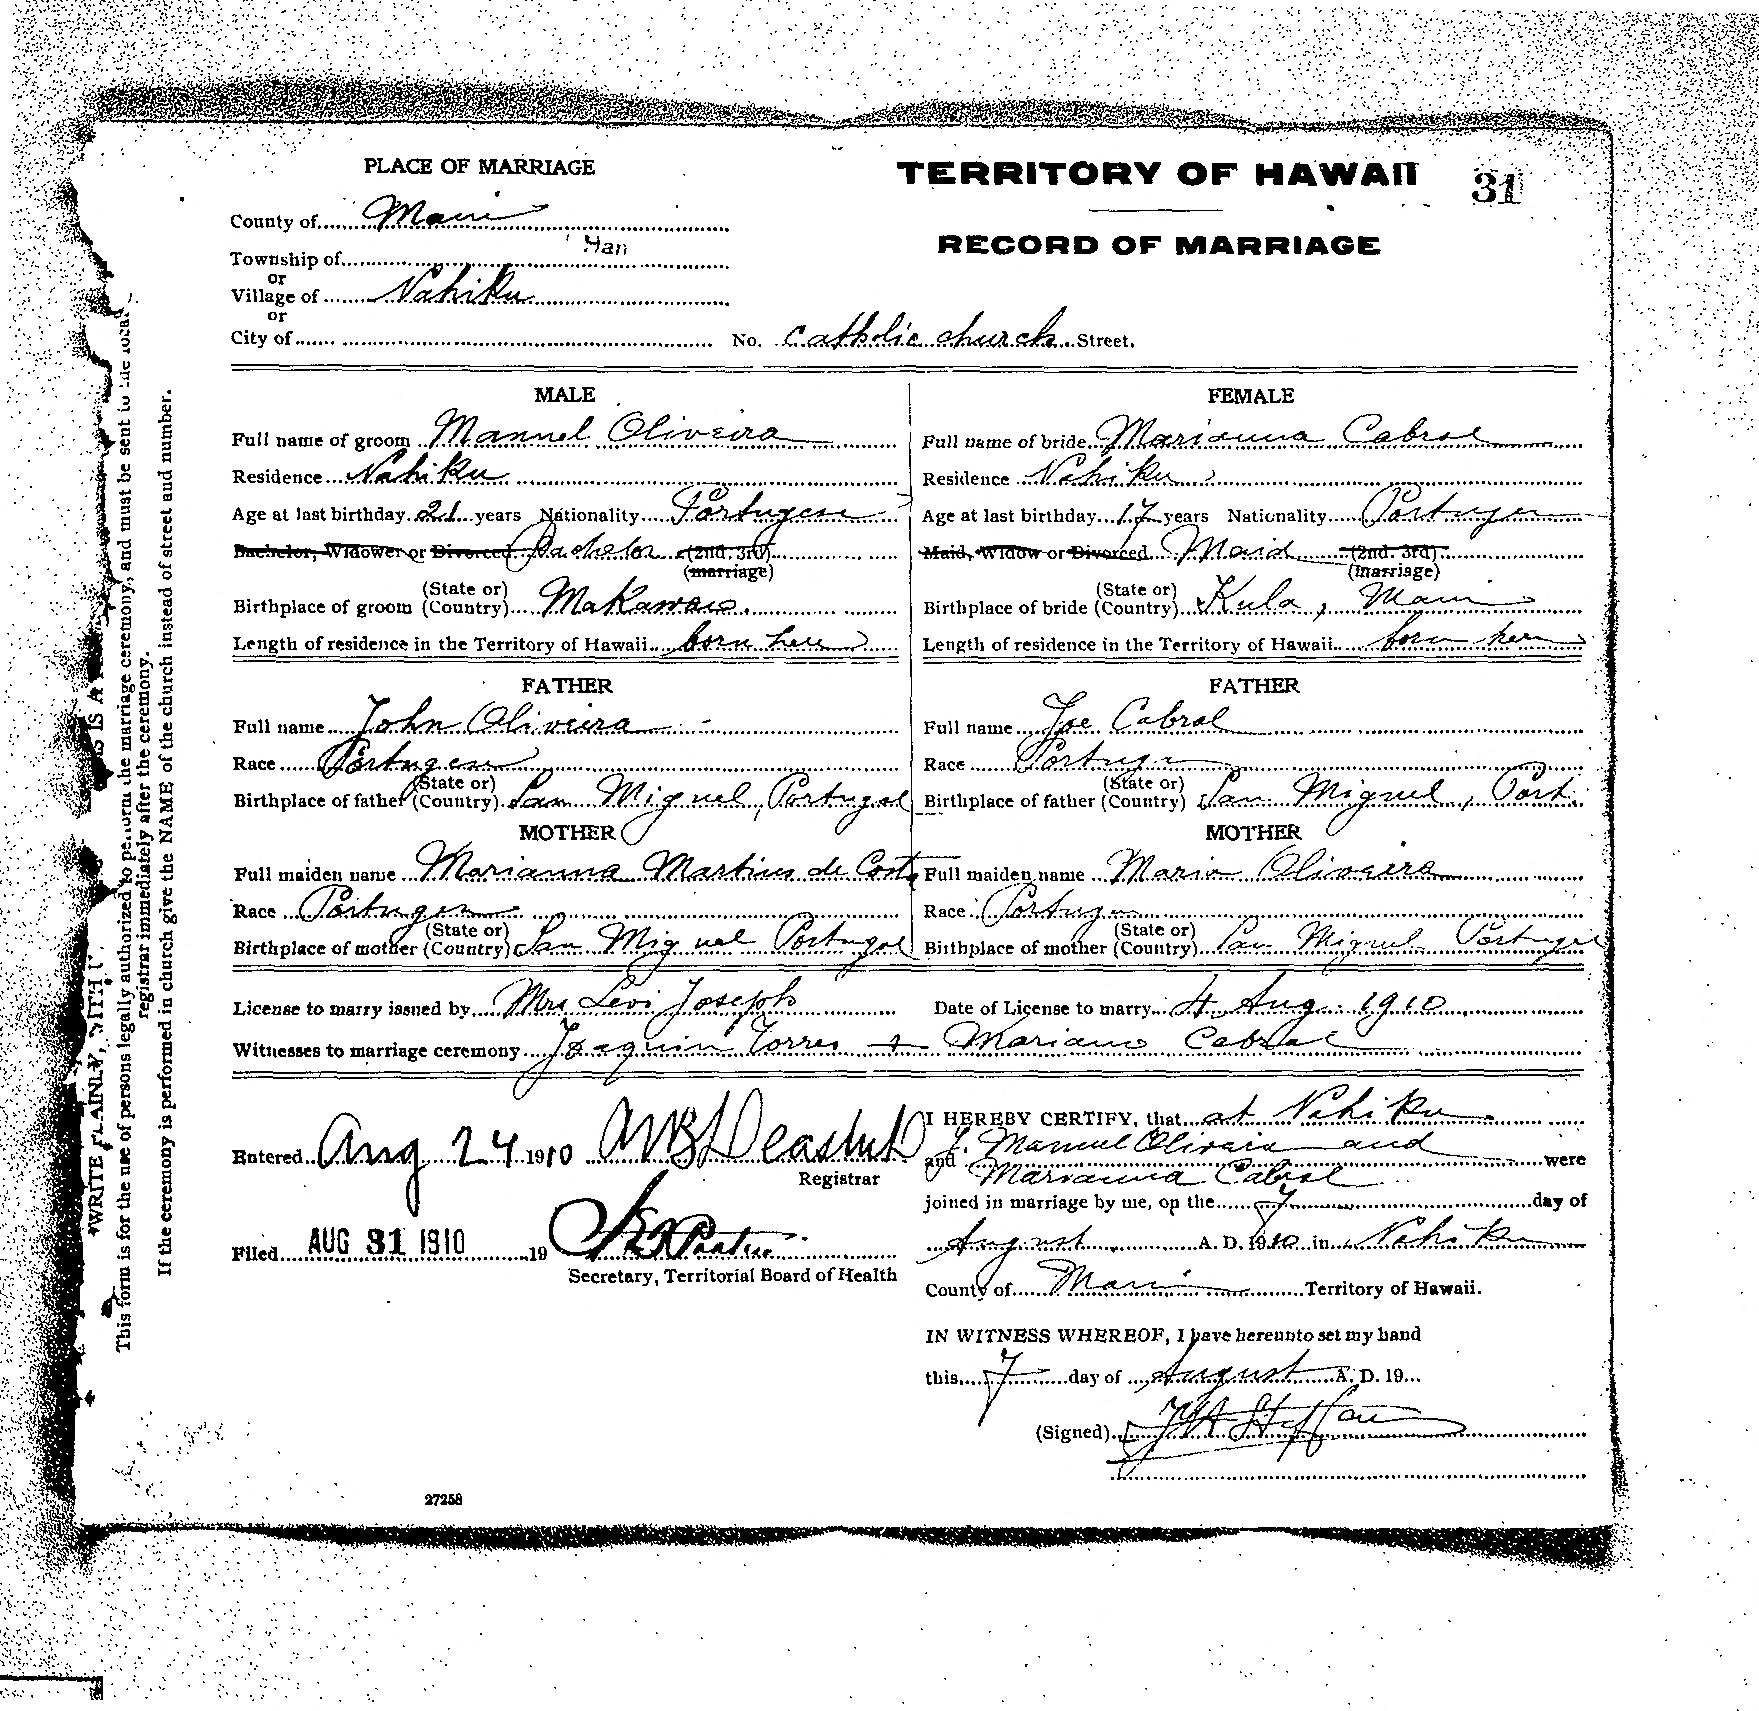 PLACE OF MARRIAGE
TERRITORY OF HAWAII
31
County of Maui
RECORD OF MARRIAGE
Township of Han
or
Village of Nahiku
or
City of No. Catholic church Street.
MALE
FEMALE
Full name of groom Manuel Oliveira
Full name of bride Marianna Cabral
Residence Nahiku
Residence Nahiku
Age at last birthday 21 years Nationality Portugese
Age at last birthday 17 years Nationality Portuges
Bachelor, Widower or Divorced Bachelor (2nd. 3rd)
(marriage)
Maid, Widow or Divorced Maid (2nd. 3rd)
(marriage)
(State or)
Birthplace of groom (Country) Makawao.
(State or)
Birthplace of bride (Country) Kula, Maui
Length of residence in the Territory of Hawaii born here
Length of residence in the Territory of Hawaii born here
FATHER
FATHER
Full name John Oliveira
Full name Joe Cabral
Race Portugese
Race Portuge
(State or)
Birthplace of father (Country) San Miguel, Portugal
(State or)
Birthplace of father (Country) San Miguel, Port.
MOTHER
MOTHER
Full maiden name Marianna Martins de Costa
Full maiden name Maria Oliveira
Race Portugese
Race Portuge
(State or)
Birthplace of mother (Country) San Miguel Portugal
(State or)
Birthplace of mother (Country) San Miguel Portugal
License to marry issued by Mrs Levi Joseph
Date of License to marry 4 Aug. 1910
Witnesses to marriage ceremony Joaquin Torres + Mariano Cabral
Entered Aug 24 1910
Registrar
Filed AUG 31 1910 19
Secretary, Territorial Board of Health
I HEREBY CERTIFY, that at Nahiku
J. Manuel Oliveira and
and Marianna Cabral were
joined in marriage by me, on the 7 day of
August A. D. 1910 in Nahiku
County of Maui Territory of Hawaii.
IN WITNESS WHEREOF, I have hereunto set my hand
this 7 day of August A. D. 19
(Signed)
27258
WRITE PLAINLY, WITH IS A
This form is for the use of persons legally authorized to perform the marriage ceremony, and must be sent to the local
registrar immediately after the ceremony.
If the ceremony is performed in church give the NAME of the church instead of street and number.